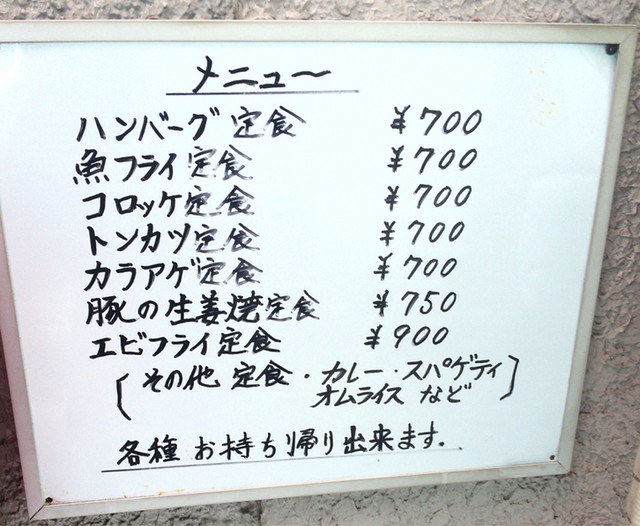 メニュー
ハンバーグ定食 ¥700
魚フライ定食 ¥700
コロッケ定食 ¥700
トンカツ定食 ¥700
カラアゲ定食 ¥700
豚の生姜焼定食 ¥750
エビフライ定食 ¥900
(その他 定食・カレー・スパゲティ
オムライス など)
各種 お持ち帰り出来ます.